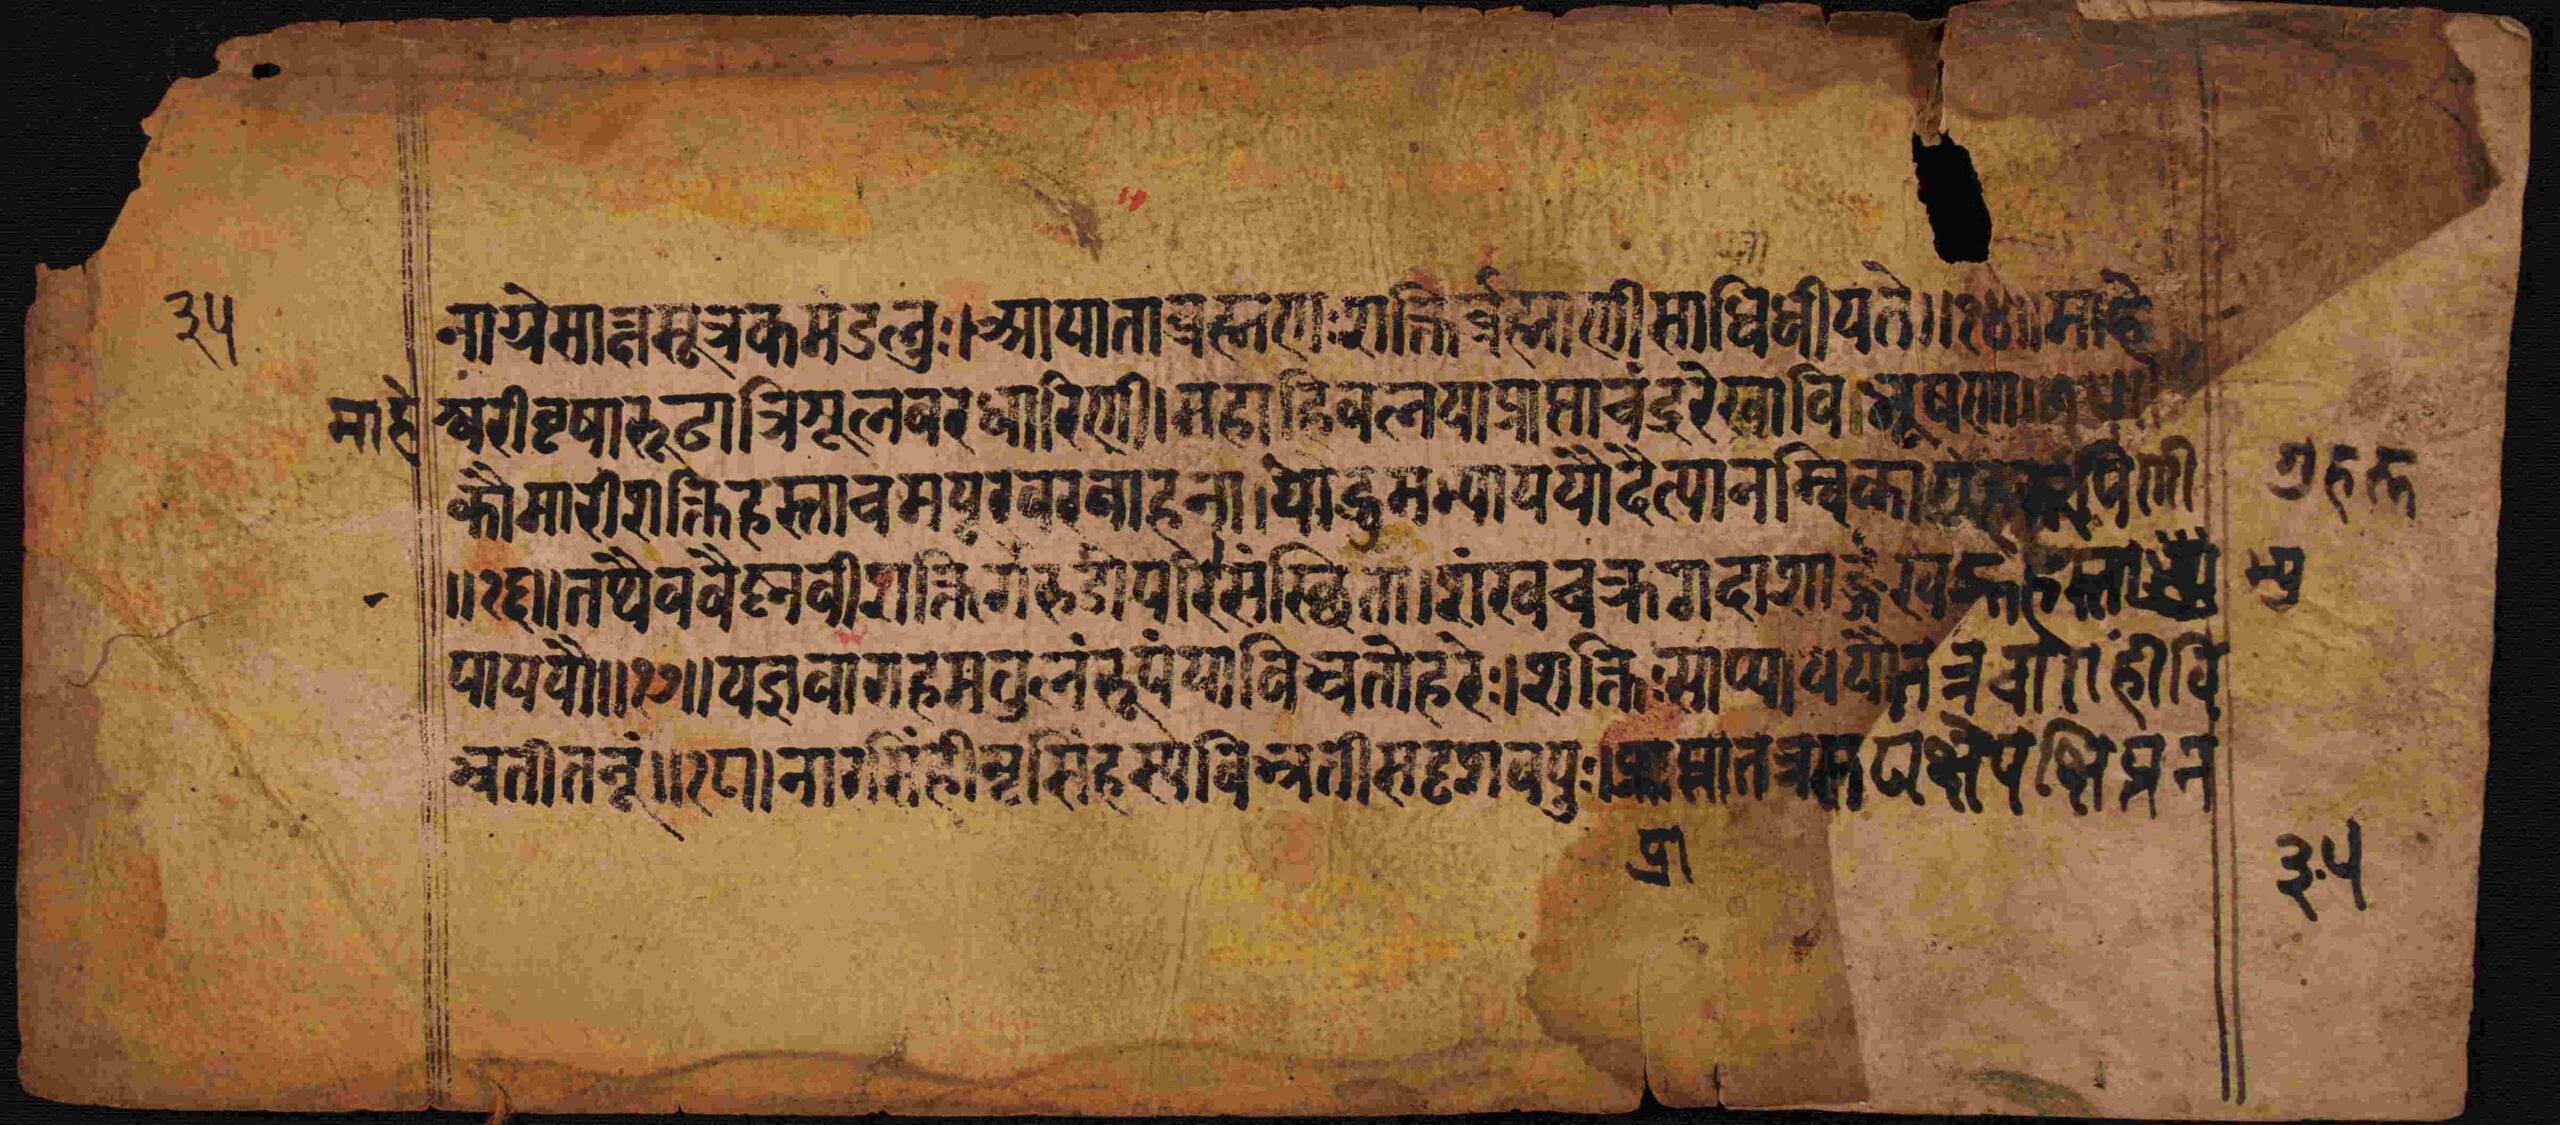 ३५
नाग्रेसाक्षसूत्रकमंडलुः। आयाताब्रह्मणःशक्तिर्ब्रह्माणीसाभिधीयते॥१४॥माहे
माहे
श्वरीवृषारूढात्रिशूलवरधारिणी। महाहिवलयाप्राप्ताचंद्ररेखाविभूषणा॥१५॥
कौमारीशक्तिहस्ताचमयूरवरवाहना। योद्धुमभ्याययौदैत्यानम्बिकागुहरूपिणी
गुहरू
॥१६॥तथैववैष्णवीशक्तिर्गरुडोपरिसंस्थिता। शंखचक्रगदाशार्ङ्गखड्गहस्ताभ्यु
भ्यु
पाययौ॥१७॥यज्ञवाराहमतुलंरूपंयाविभ्रतोहरेः। शक्तिःसाप्याययौतत्रवाराहीवि
भ्रतीतनूं॥१८। नारसिंहीनृसिंहस्यविभ्रतीसदृशवपुः। प्राप्तातत्रसटाक्षेपक्षिप्तन
प्रा
३५